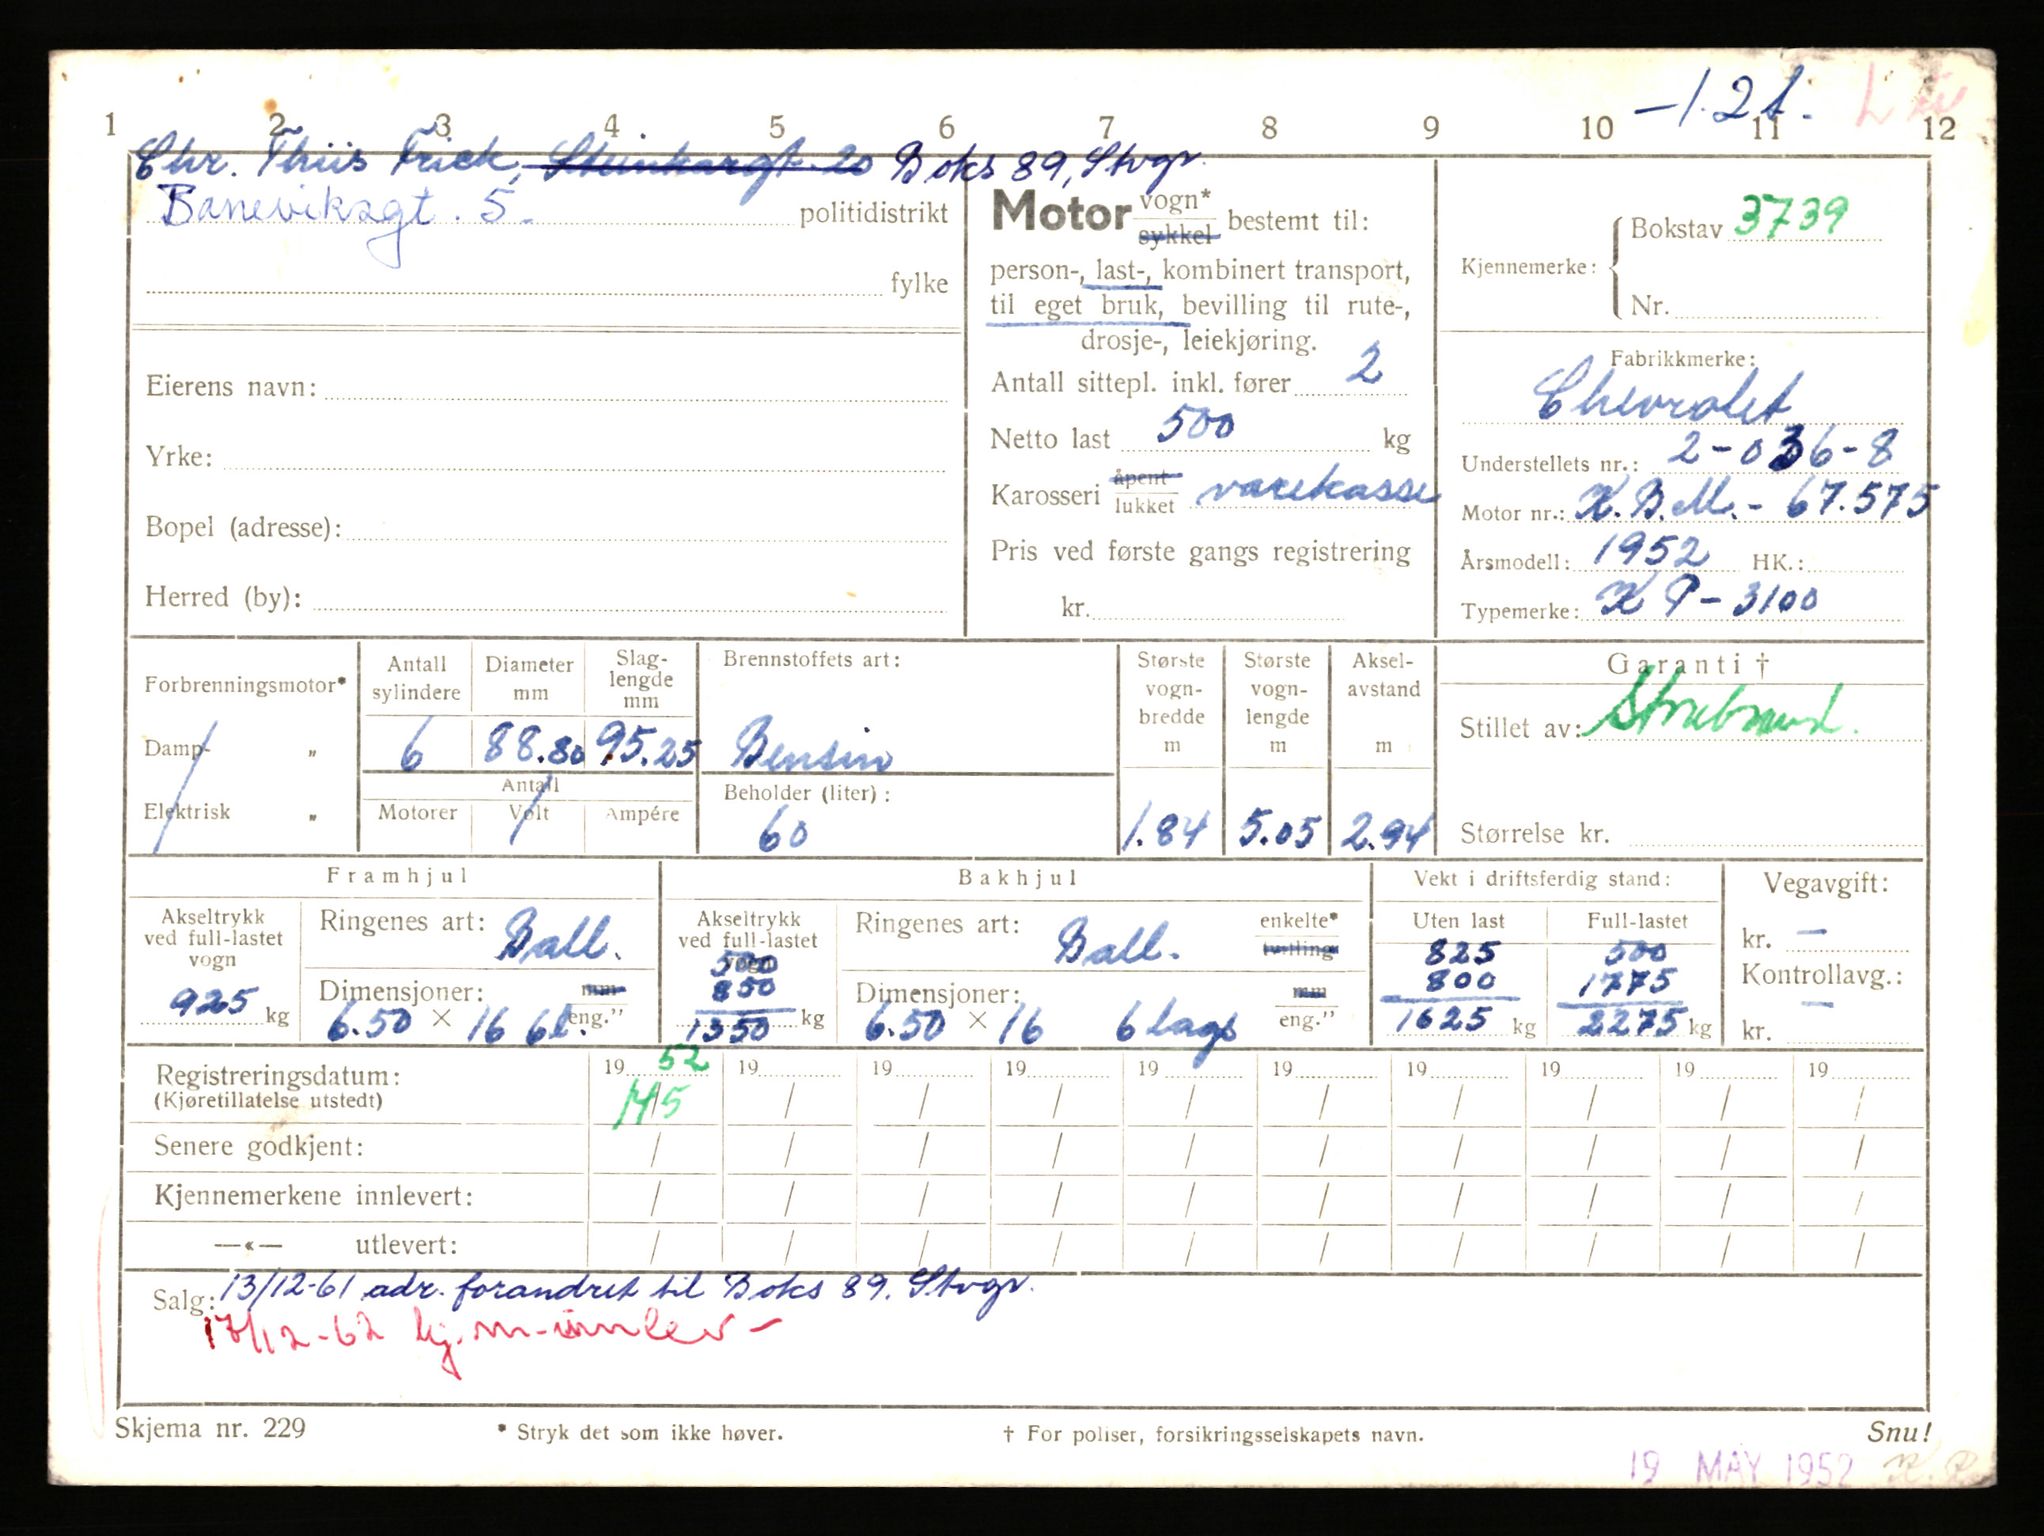 -1.2t.
1 2 3 4 5 6 7 8 9 10 11 12
Chr. Thiis Frick, Steinkargt 20 Boks 89, Stvgr.
Baneviksgt. 5. politidistrikt
fylke
Eierens navn:
Yrke:
Bopel (adresse):
Herred (by):
Motor vogn* sykkel bestemt til:
person-, last-, kombinert transport,
til eget bruk, bevilling til rute-,
drosje-, leiekjøring.
Antall sittepl. inkl. fører 2
Netto last 500 kg
Karosseri åpent lukket varekasse
Pris ved første gangs registrering
kr.
Kjennemerke: Bokstav 3739
Nr.
Fabrikkmerke:
Chevrolet
Understellets nr.: 2-036-8
Motor nr.: K.B.M.- 67.575
Årsmodell: 1952 HK.:
Typemerke: K P-3100
Forbrenningsmotor*
Damp- „
Elektrisk „
Antall sylindere 6
Diameter mm 88.80
Slag-lengde mm 95.25
Antall
Motorer Volt Ampére
Brennstoffets art:
Bensin
Beholder (liter):
60
Største vogn-bredde m 1.84
Største vogn-lengde m 5.05
Aksel-avstand m 2.94
Garanti †
Stillet av: Storebrand.
Størrelse kr.
Framhjul
Akseltrykk ved full-lastet vogn
925 kg
Ringenes art: Ball.
Dimensjoner: mm eng."
6.50 × 16 6l.
Bakhjul
Akseltrykk ved full-lastet vogn
500
850
1350 kg
Ringenes art: Ball. enkelte* tvilling
Dimensjoner: mm eng."
6.50 × 16 6 lags
Vekt i driftsferdig stand:
Uten last
825
800
1625 kg
Full-lastet
500
1775
2275 kg
Vegavgift:
kr. —
Kontrollavg.:
kr. —
Registreringsdatum: 19 52 19 19 19 19 19 19 19 19 19
(Kjøretillatelse utstedt) 14/5 / / / / / / / / /
Senere godkjent: / / / / / / / / / /
Kjennemerkene innlevert: / / / / / / / / / /
—«— utlevert: / / / / / / / / / /
Salg: 13/12-61 adr. forandret til Boks 89. Stvgr.
17/12-62 kj.m-innlev-
Skjema nr. 229
* Stryk det som ikke høver.
† For poliser, forsikringsselskapets navn.
Snu!
19 MAY 1952